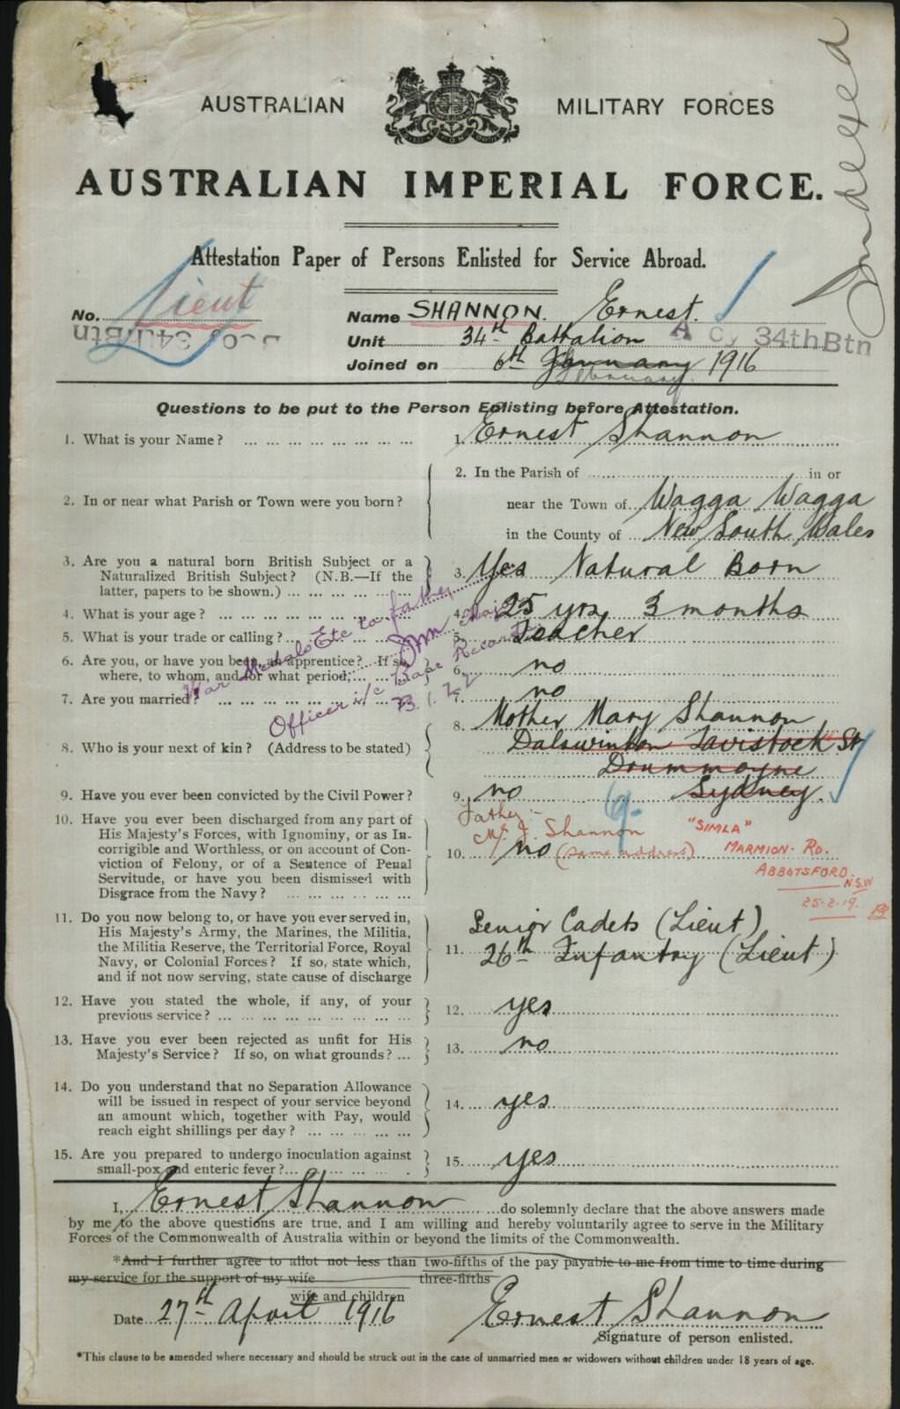 Indexed
AUSTRALIAN MILITARY FORCES
AUSTRALIAN IMPERIAL FORCE.
Attestation Paper of Persons Enlisted for Service Abroad.
No. Lieut
Name SHANNON. Ernest.
Unit 34th Battalion
A Coy 34th Btn
Joined on 6th January 1916
February
Questions to be put to the Person Enlisting before Attestation.
1. What is your Name? ... 1. Ernest Shannon
2. In or near what Parish or Town were you born? 2. In the Parish of ... in or
near the Town of Wagga Wagga
in the County of New South Wales
3. Are you a natural born British Subject or a
Naturalized British Subject? (N.B.—If the
latter, papers to be shown.) ... 3. Yes Natural Born
4. What is your age? ... 4. 25 yrs 3 months
5. What is your trade or calling? ... 5. Teacher
6. Are you, or have you been, an apprentice? If so,
where, to whom, and for what period; ... 6. no
7. Are you married? ... 7. no
War Medals Etc to father
Officer i/c Base Records
8. Who is your next of kin? (Address to be stated) 8. Mother Mary Shannon
Dalswinton Tavistock St
Drummoyne
Sydney.
9. Have you ever been convicted by the Civil Power? 9. no
Father:-
Mr J. Shannon
(same address)
"SIMLA"
MARMION RD.
ABBOTSFORD.
N.S.W
25-2-19.
10. Have you ever been discharged from any part of
His Majesty's Forces, with Ignominy, or as In-
corrigible and Worthless, or on account of Con-
viction of Felony, or of a Sentence of Penal
Servitude, or have you been dismissed with
Disgrace from the Navy? ... 10. no
11. Do you now belong to, or have you ever served in,
His Majesty's Army, the Marines, the Militia,
the Militia Reserve, the Territorial Force, Royal
Navy, or Colonial Forces? If so, state which,
and if not now serving, state cause of discharge
11. Senior Cadets (Lieut)
26th Infantry (Lieut)
12. Have you stated the whole, if any, of your
previous service? ... 12. yes
13. Have you ever been rejected as unfit for His
Majesty's Service? If so, on what grounds? ... 13. no
14. Do you understand that no Separation Allowance
will be issued in respect of your service beyond
an amount which, together with Pay, would
reach eight shillings per day? ... 14. yes
15. Are you prepared to undergo inoculation against
small-pox and enteric fever? ... 15. yes
I, Ernest Shannon do solemnly declare that the above answers made
by me to the above questions are true, and I am willing and hereby voluntarily agree to serve in the Military
Forces of the Commonwealth of Australia within or beyond the limits of the Commonwealth.
*And I further agree to allot not less than two-fifths of the pay payable to me from time to time during
three-fifths
my service for the support of my wife
wife and children
Date 27th April 1916
Ernest Shannon
Signature of person enlisted.
*This clause to be amended where necessary and should be struck out in the case of unmarried men or widowers without children under 18 years of age.